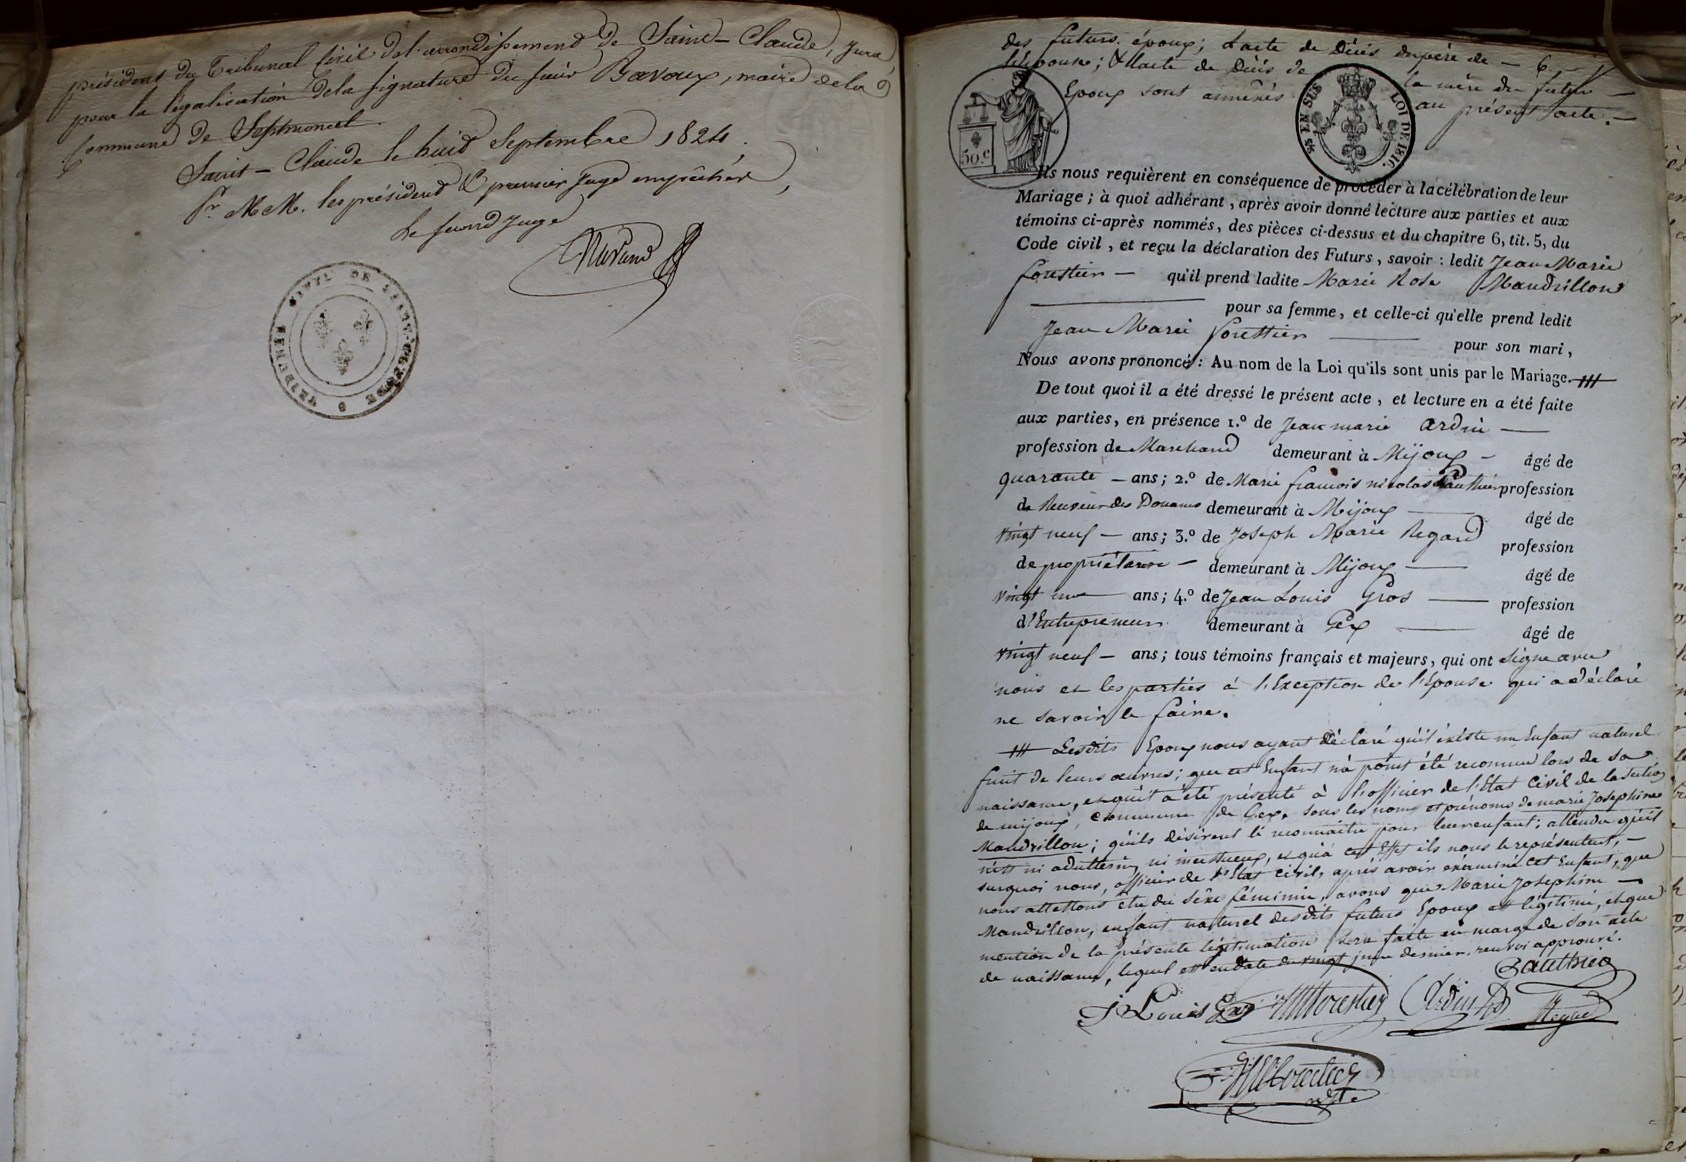 président du Tribunal Civil de l'arrondissement de Saint-Claude, Jura,
pour la légalisation de la signature du sieur Bavoux, maire de la
Commune de Septmoncel.
Saint-Claude le huit Septembre 1824.
Pr MM. les président & premier Juge empêchés,
Le second Juge
TRIBUNAL CIVIL DE SAINT-CLAUDE
des futurs époux; l'acte de Décès du père de
l'épouse; & l'acte de Décès de la mère du futur
Epoux sont annexés au présent acte.
50.c
EN SUS LOI DE 1816.
Ils nous requièrent en conséquence de procéder à la célébration de leur
Mariage; à quoi adhérant, après avoir donné lecture aux parties et aux
témoins ci-après nommés, des pièces ci-dessus et du chapitre 6, tit. 5, du
Code civil, et reçu la déclaration des Futurs, savoir: ledit Jean Marie
forestier — qu'il prend ladite Marie Rose Mandrillon
pour sa femme, et celle-ci qu'elle prend ledit
Jean Marie forestier — pour son mari,
Nous avons prononcé: Au nom de la Loi qu'ils sont unis par le Mariage. #
De tout quoi il a été dressé le présent acte, et lecture en a été faite
aux parties, en présence 1.º de Jean marie ardin —
profession de Marchand demeurant à Mijoux — âgé de
quarante — ans; 2.º de Marie françois nicolas Gauthier profession
de Receveur des Douanes demeurant à Mijoux — âgé de
vingt neuf — ans; 3.º de Joseph Marie Regard profession
de propriétaire — demeurant à Mijoux — âgé de
vingt une — ans; 4.º de Jean Louis Gros — profession
d'Entrepreneur demeurant à Gex — âgé de
vingt neuf — ans; tous témoins français et majeurs, qui ont signé avec
nous et les parties à l'Exception de l'Epouse qui a déclaré
ne savoir le faire.
# Lesdits Epoux nous ayant Déclaré qu'il existe un Enfant naturel
fruit de leurs œuvres; que cet Enfant n'a point été reconnu lors de sa
naissance, et qu'il a été présenté à l'officier de l'Etat Civil de la section
de mijoux, Commune de Gex, sous les noms et prénoms de marie Josephine
Mandrillon; qu'ils désirent le reconnaitre pour leur enfant; attendu qu'il
n'est ni adultérin, ni incestueux, et qu'à cet Effet ils nous le représentent, —
surquoi nous, officier de l'Etat Civil, après avoir examiné cet Enfant, que
nous attestons être du sèxe féminin, avons que Marie Josephine —
Mandrillon, enfant naturel desdits futurs Epoux est légitimé, et que
mention de la présente légitimation sera faite en marge de son acte
de naissance, lequel est en date du vingt juin dernier. renvoi approuvé.
Gauthier
J Louis Gros JM forestier Ardin Regard
JM forestier